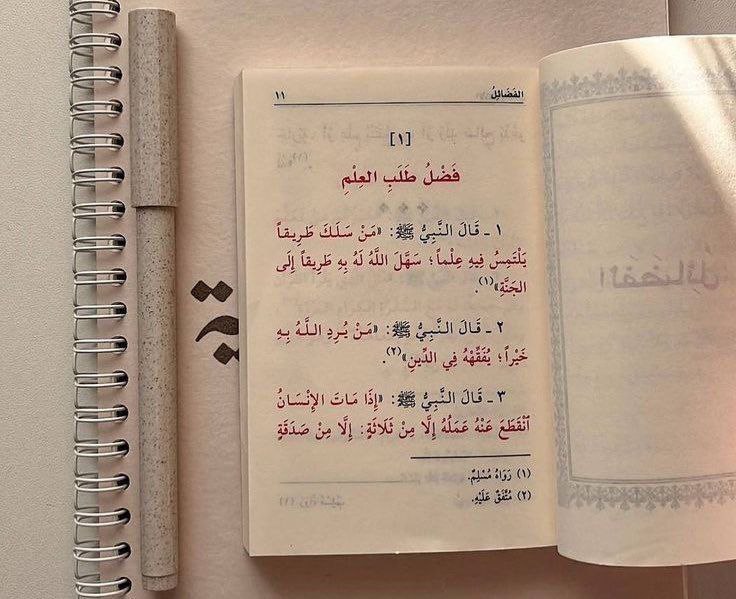 الفَضَائِلُ ١١
[١]
فَضْلُ طَلَبِ العِلْمِ
١ ـ قَالَ النَّبِيُّ ﷺ: «مَنْ سَلَكَ طَرِيقاً
يَلْتَمِسُ فِيهِ عِلْماً؛ سَهَّلَ اللَّهُ لَهُ بِهِ طَرِيقاً إِلَى
الجَنَّةِ»(١).
٢ ـ قَالَ النَّبِيُّ ﷺ: «مَنْ يُرِدِ اللَّهُ بِهِ
خَيْراً؛ يُفَقِّهْهُ فِي الدِّينِ»(٢).
٣ ـ قَالَ النَّبِيُّ ﷺ: «إِذَا مَاتَ الإِنْسَانُ
ٱنْقَطَعَ عَنْهُ عَمَلُهُ إِلَّا مِنْ ثَلَاثَةٍ: إِلَّا مِنْ صَدَقَةٍ
(١) رَوَاهُ مُسْلِمٌ.
(٢) مُتَّفَقٌ عَلَيْهِ.
الفَضَائِلُ